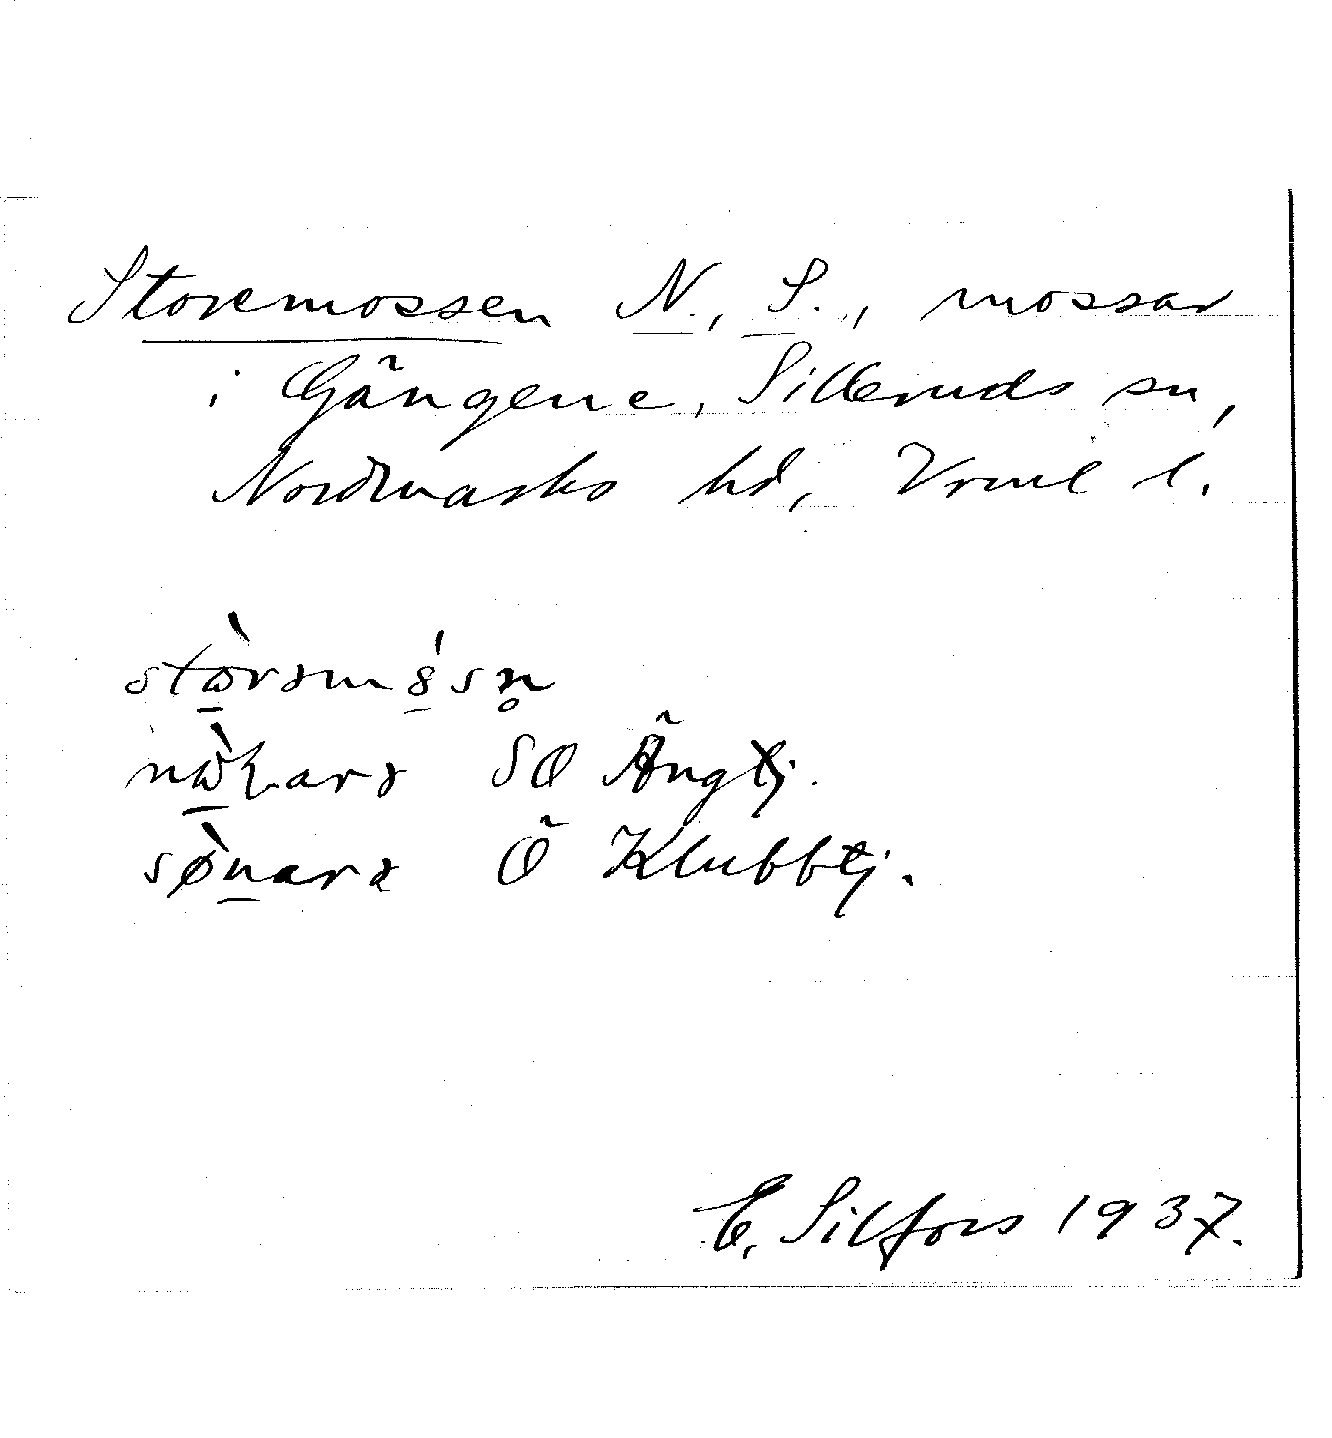 Storemossen N., S., mossar
i Gängene, Silleruds sn,
Nordmarks hd, Vrml l.
stò̠rəmó̠sn̥
nò̠ɭarə SO Ängtj.
sø̀n̠arə Ö Klubbtj.
E. Silfors 1937.